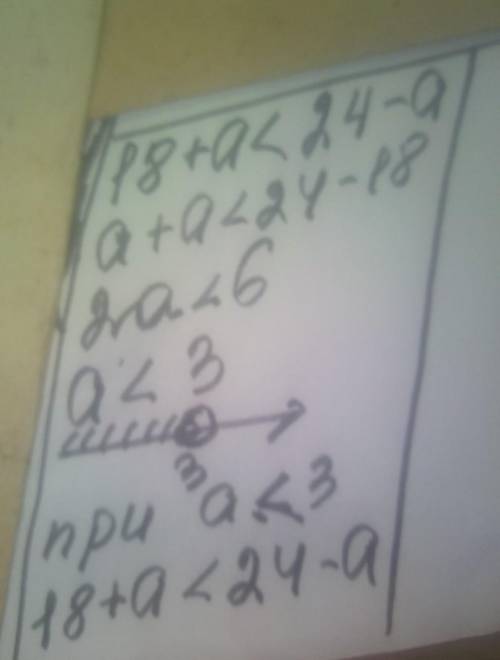 18+a<24-a
a+a<24-18
2a<6
a<3
3
при a<3
18+a<24-a